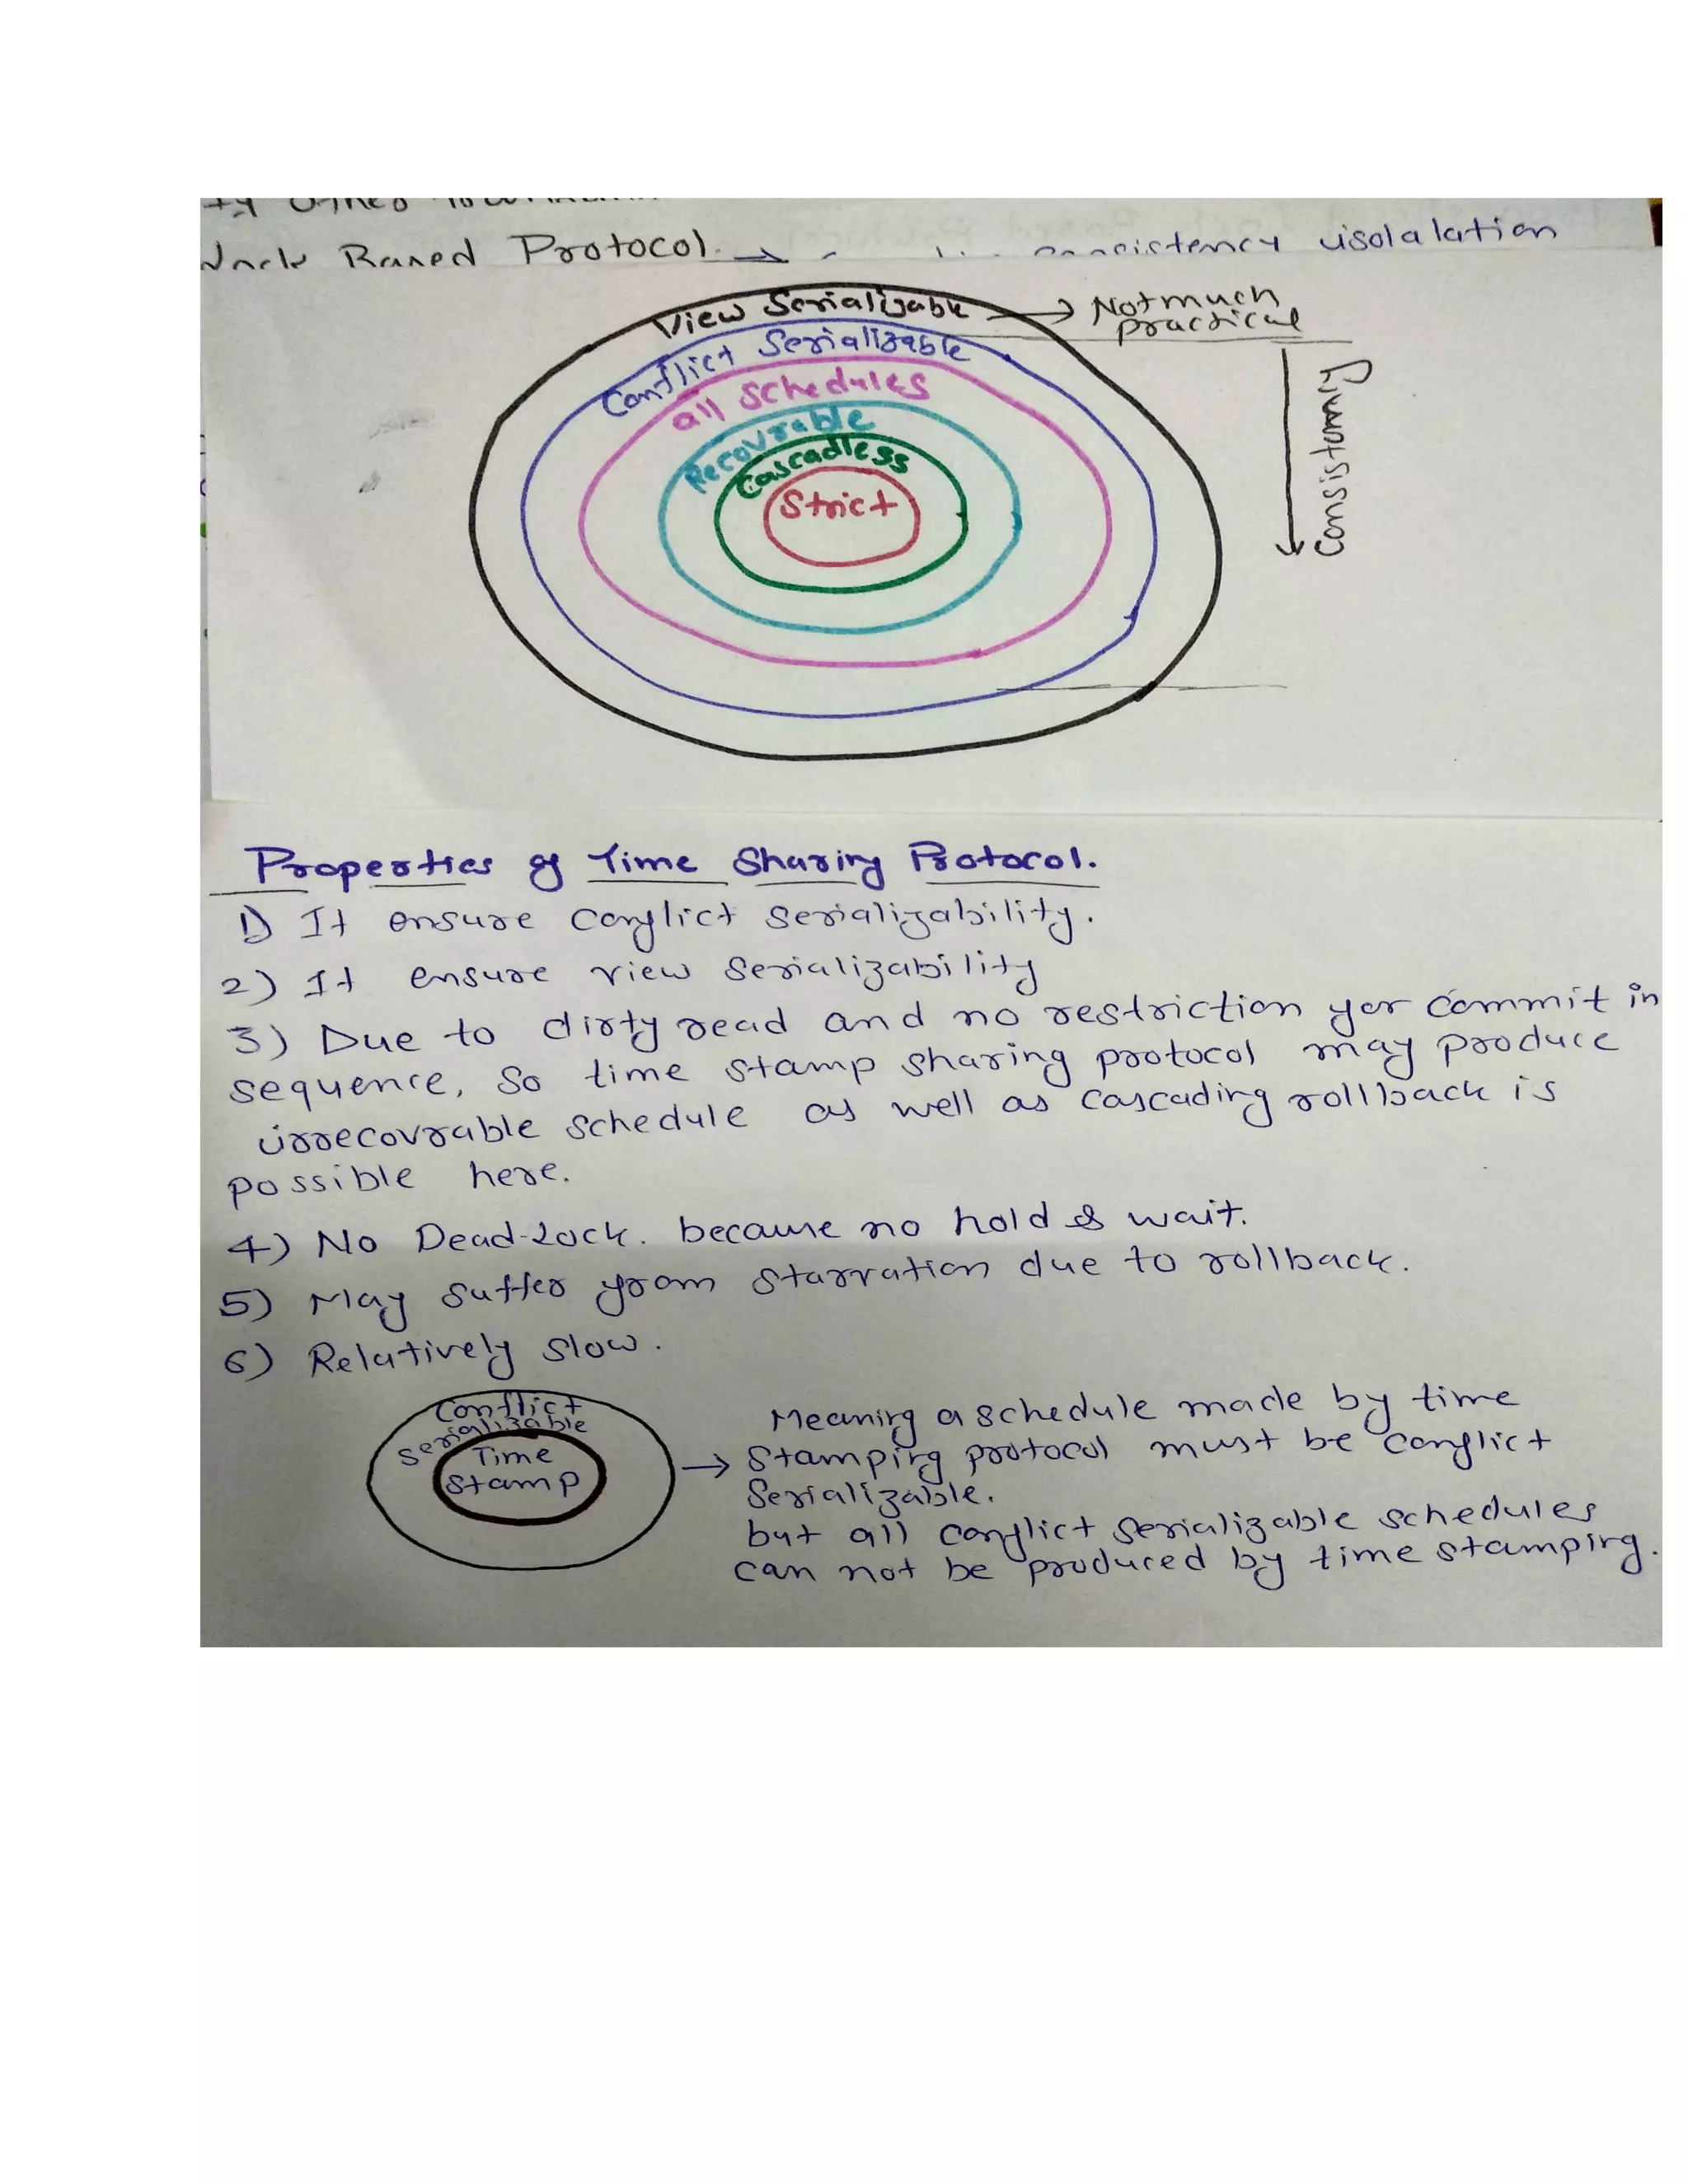 Lock Based Protocol. → consistency isolalation
View Serializable → Not much
practical
Conflict Serializable
all schedules
Recovrable
Cascadless
Strict
Consistemiy
Properties of Time Sharing Protocol.
1) It ensure conflict serializability.
2) It ensure view serializability
3) Due to dirty read and no restriction for commit in
sequence, so time stamp sharing protocol may produce
irrecovrable schedule as well as cascading rollback is
possible here.
4) No Dead-Lock. because no hold & wait.
5) May suffer from starvation due to rollback.
6) Relatively slow.
Conflict
Serializable
Time
Stamp
Meaning a schedule made by time
→ stamping protocol must be conflict
Serializable.
but all conflict serializable schedules
can not be produced by time stamping.